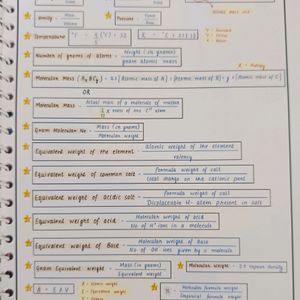 Density = Mass / Volume
Pressure = Force / Area
Temperature °F = 9/5 (°C) + 32
K = °C + 273.15
Number of gram of atoms = Weight (in grams) / gram atomic mass
Molecular Mass (AxBCy) = x [Atomic mass of A] + [Atomic mass of B] + y [Atomic mass of C]
OR
Molecular Mass = Actual mass of a molecule of matter / 1/12 x mass of one C¹² atom
Gram Molecular No. = Mass (in grams) / Molecular weight
Equivalent weight of the element = Atomic weight of the element / valency
Equivalent weight of common salt = formula weight of salt / total charge on the cationic part
Equivalent weight of Acidic salt = formula weight of salt / Displaceable H- atom present in salt
Equivalent weight of acid = Molecular weight of acid / No of H⁺ ions in a molecule
Equivalent weight of Base = Molecular weight of Base / No. of OH ions given by a molecule
Gram Equivalent weight = Mass (in grams) / Equivalent weight
Molecular weight = 2 x Vapour Density
A = E x V
A - Atomic weight
E - Equivalent weight
V - Valency
Molecular formula weight / Empirical formula weight